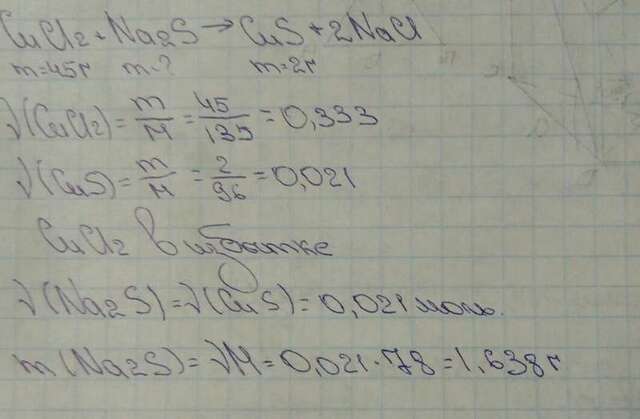 CuCl2 + Na2S → CuS + 2NaCl
m=45г m-? m=2г
ν(CuCl2) = m/M = 45/135 = 0,333
ν(CuS) = m/M = 2/96 = 0,021
CuCl2 в избытке
ν(Na2S) = ν(CuS) = 0,021 моль.
m(Na2S) = νM = 0,021·78 = 1,638г